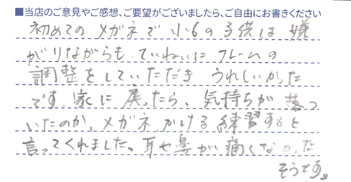 ■当店のご意見やご感想、ご要望がございましたら、ご自由にお書きください
初めてのメガネで小6の子供は嫌
がりながらもていねいにフレームの
調整をしていただきうれしかった
です 家に戻ったら、気持ちが落つ
いたのか、メガネかける練習すると
言ってくれました。耳や鼻が痛くなかった
そうです。